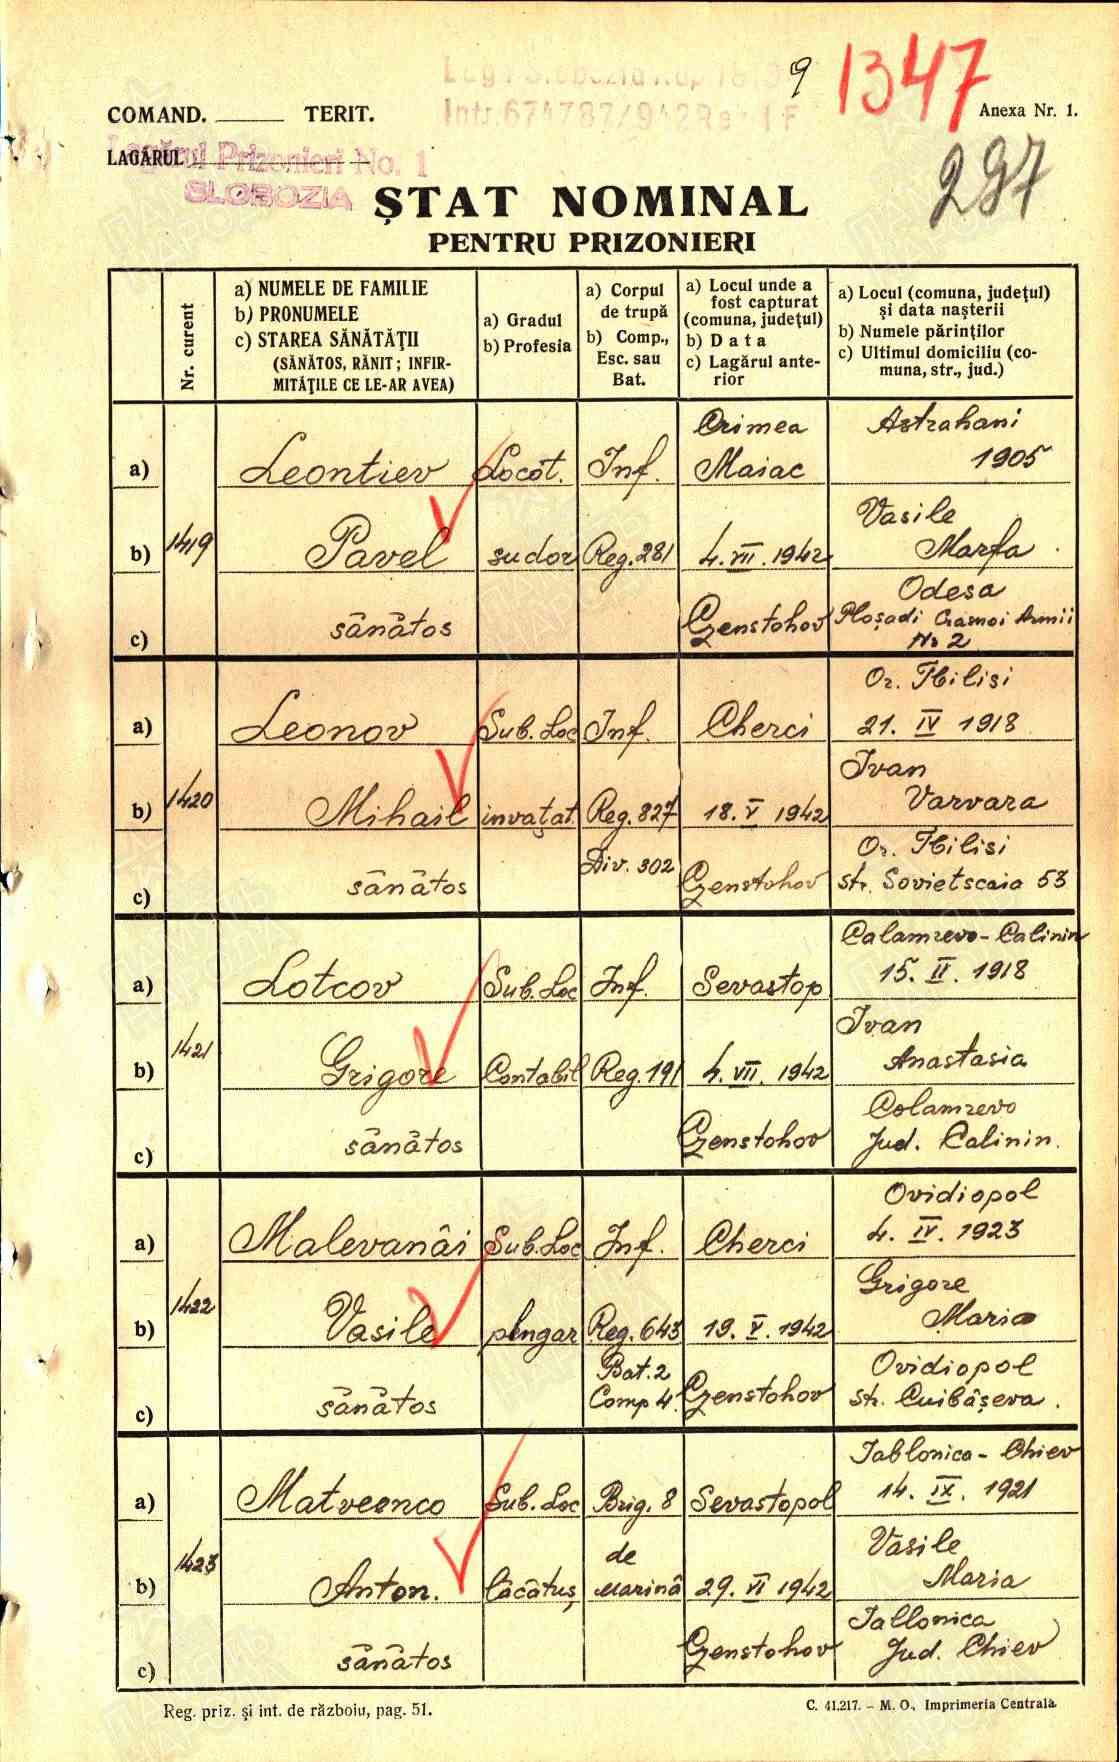 9 1347
COMAND. ______ TERIT. Anexa Nr. 1.
LAGĂRUL Lagărul Prizonieri No. 1
SLOBOZIA
297
ȘTAT NOMINAL
PENTRU PRIZONIERI
Nr. curent
a) NUMELE DE FAMILIE
b) PRONUMELE
c) STAREA SĂNĂTĂȚII
(SĂNĂTOS, RĂNIT; INFIR-
MITĂȚILE CE LE-AR AVEA)
a) Gradul
b) Profesia
a) Corpul
de trupă
b) Comp.,
Esc. sau
Bat.
a) Locul unde a
fost capturat
(comuna, județul)
b) Data
c) Lagărul ante-
rior
a) Locul (comuna, județul)
și data nașterii
b) Numele părinților
c) Ultimul domiciliu (co-
muna, str., jud.)
Crimea Astrahani
a) Leontiev Locot. Inf. Maiac 1905
Vasile
1419 b) Pavel sudor Reg. 281 4. VII. 1942 Marfa
Odesa
c) sănătos Czenstohov Ploșadi Crasnoi Armii
No 2
Or. Tbilisi
a) Leonov Sub. Loc Inf. Cherci 21. IV 1918
Ivan
1420 b) Mihail invațat. Reg. 827 18. V 1942 Varvara
Div. 302 Or. Tbilisi
c) sănătos Czenstohov str. Sovietscaia 53
Calamzevo - Calinin
a) Lotcov Sub. Loc Inf. Sevastop 15. II. 1918
Ivan
1421 b) Grigore Contabil Reg. 191 4. VII. 1942 Anastasia
Colamzevo
c) sănătos Czenstohov Jud. Calinin.
Ovidiopol
a) Malevanâi Sub. Loc Inf. Cherci 4. IV. 1923
Grigore
1422 b) Vasile plugar Reg. 643 19. V. 1942 Maria
Bat. 2 Ovidiopol
c) sănătos Comp 4. Czenstohov str. Cuibâșeva.
Iablonica - Chiev
a) Matveenco Sub. Loc Brig. 8 Sevastopol 14. IX. 1921
de Vasile
1423 b) Anton. lăcătuș marină 29. VI 1942 Maria
Iablonica
c) sănătos Czenstohov Jud. Chiev
Reg. priz. și int. de războiu, pag. 51. C. 41.217. – M. O., Imprimeria Centrala.